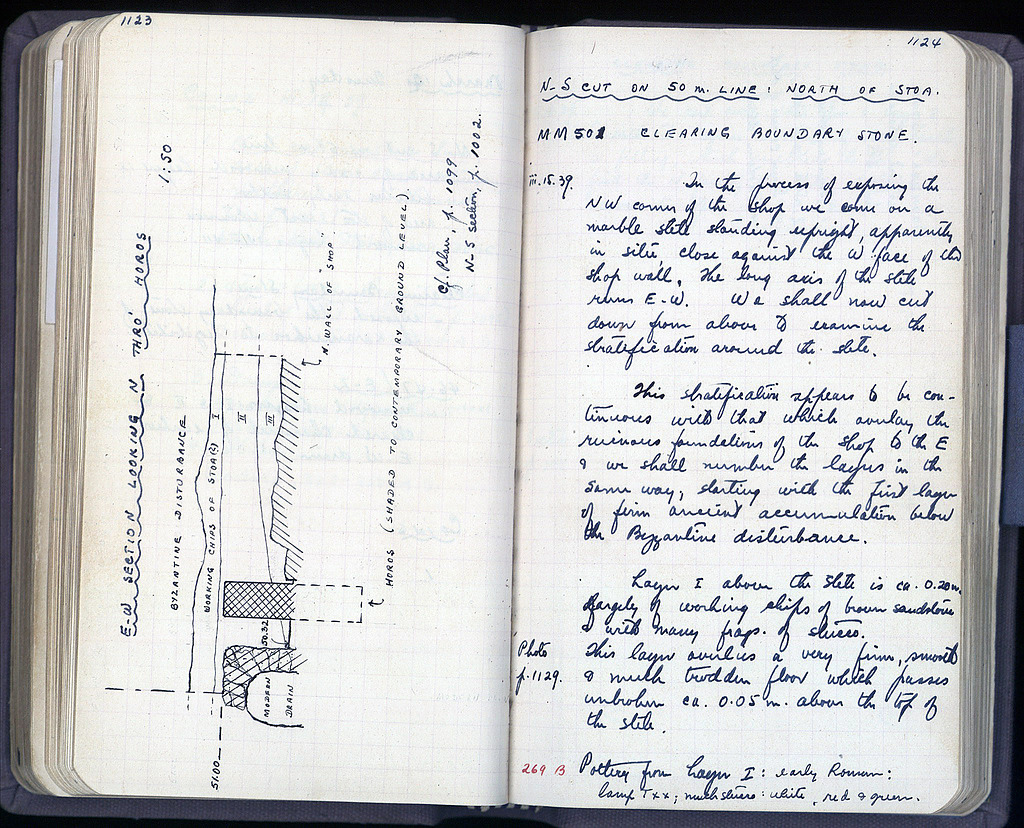 1123
E-W SECTION LOOKING N THRO' HOROS
1:50
BYZANTINE DISTURBANCE
WORKING CHIPS OF STOA(?)
I
II
III
N. WALL OF "SHOP"
HOROS (SHADED TO CONTEMPORARY GROUND LEVEL)
Cf. Plan, p. 1099
N-S section, p. 1002.
50.32
MODERN
DRAIN
51.00
1124
N-S CUT ON 50 m. LINE: NORTH OF STOA.
MM 501 CLEARING BOUNDARY STONE.
iii.15.39.
In the process of exposing the
NW corner of the shop we come on a
marble stele standing upright, apparently
in situ, close against the W. face of the
shop wall. The long axis of the stele
runs E-W. We shall now cut
down from above to examine the
stratification around the stele.
This stratification appears to be con-
tinuous with that which overlay the
ruinous foundations of the shop to the E
& we shall number the layers in the
same way, starting with the first layer
of firm ancient accumulation below
the Byzantine disturbance.
Layer I above the stele is ca. 0.20 m.
largely of working chips of brown sandstone
& with many frags. of stucco.
Photo
p. 1129.
This layer overlies a very firm, smooth
& much trodden floor which passes
unbroken ca. 0.05 m. above the top of
the stele.
269 B
Pottery from Layer I: early Roman:
lamp T xx; much stucco: white, red & green.